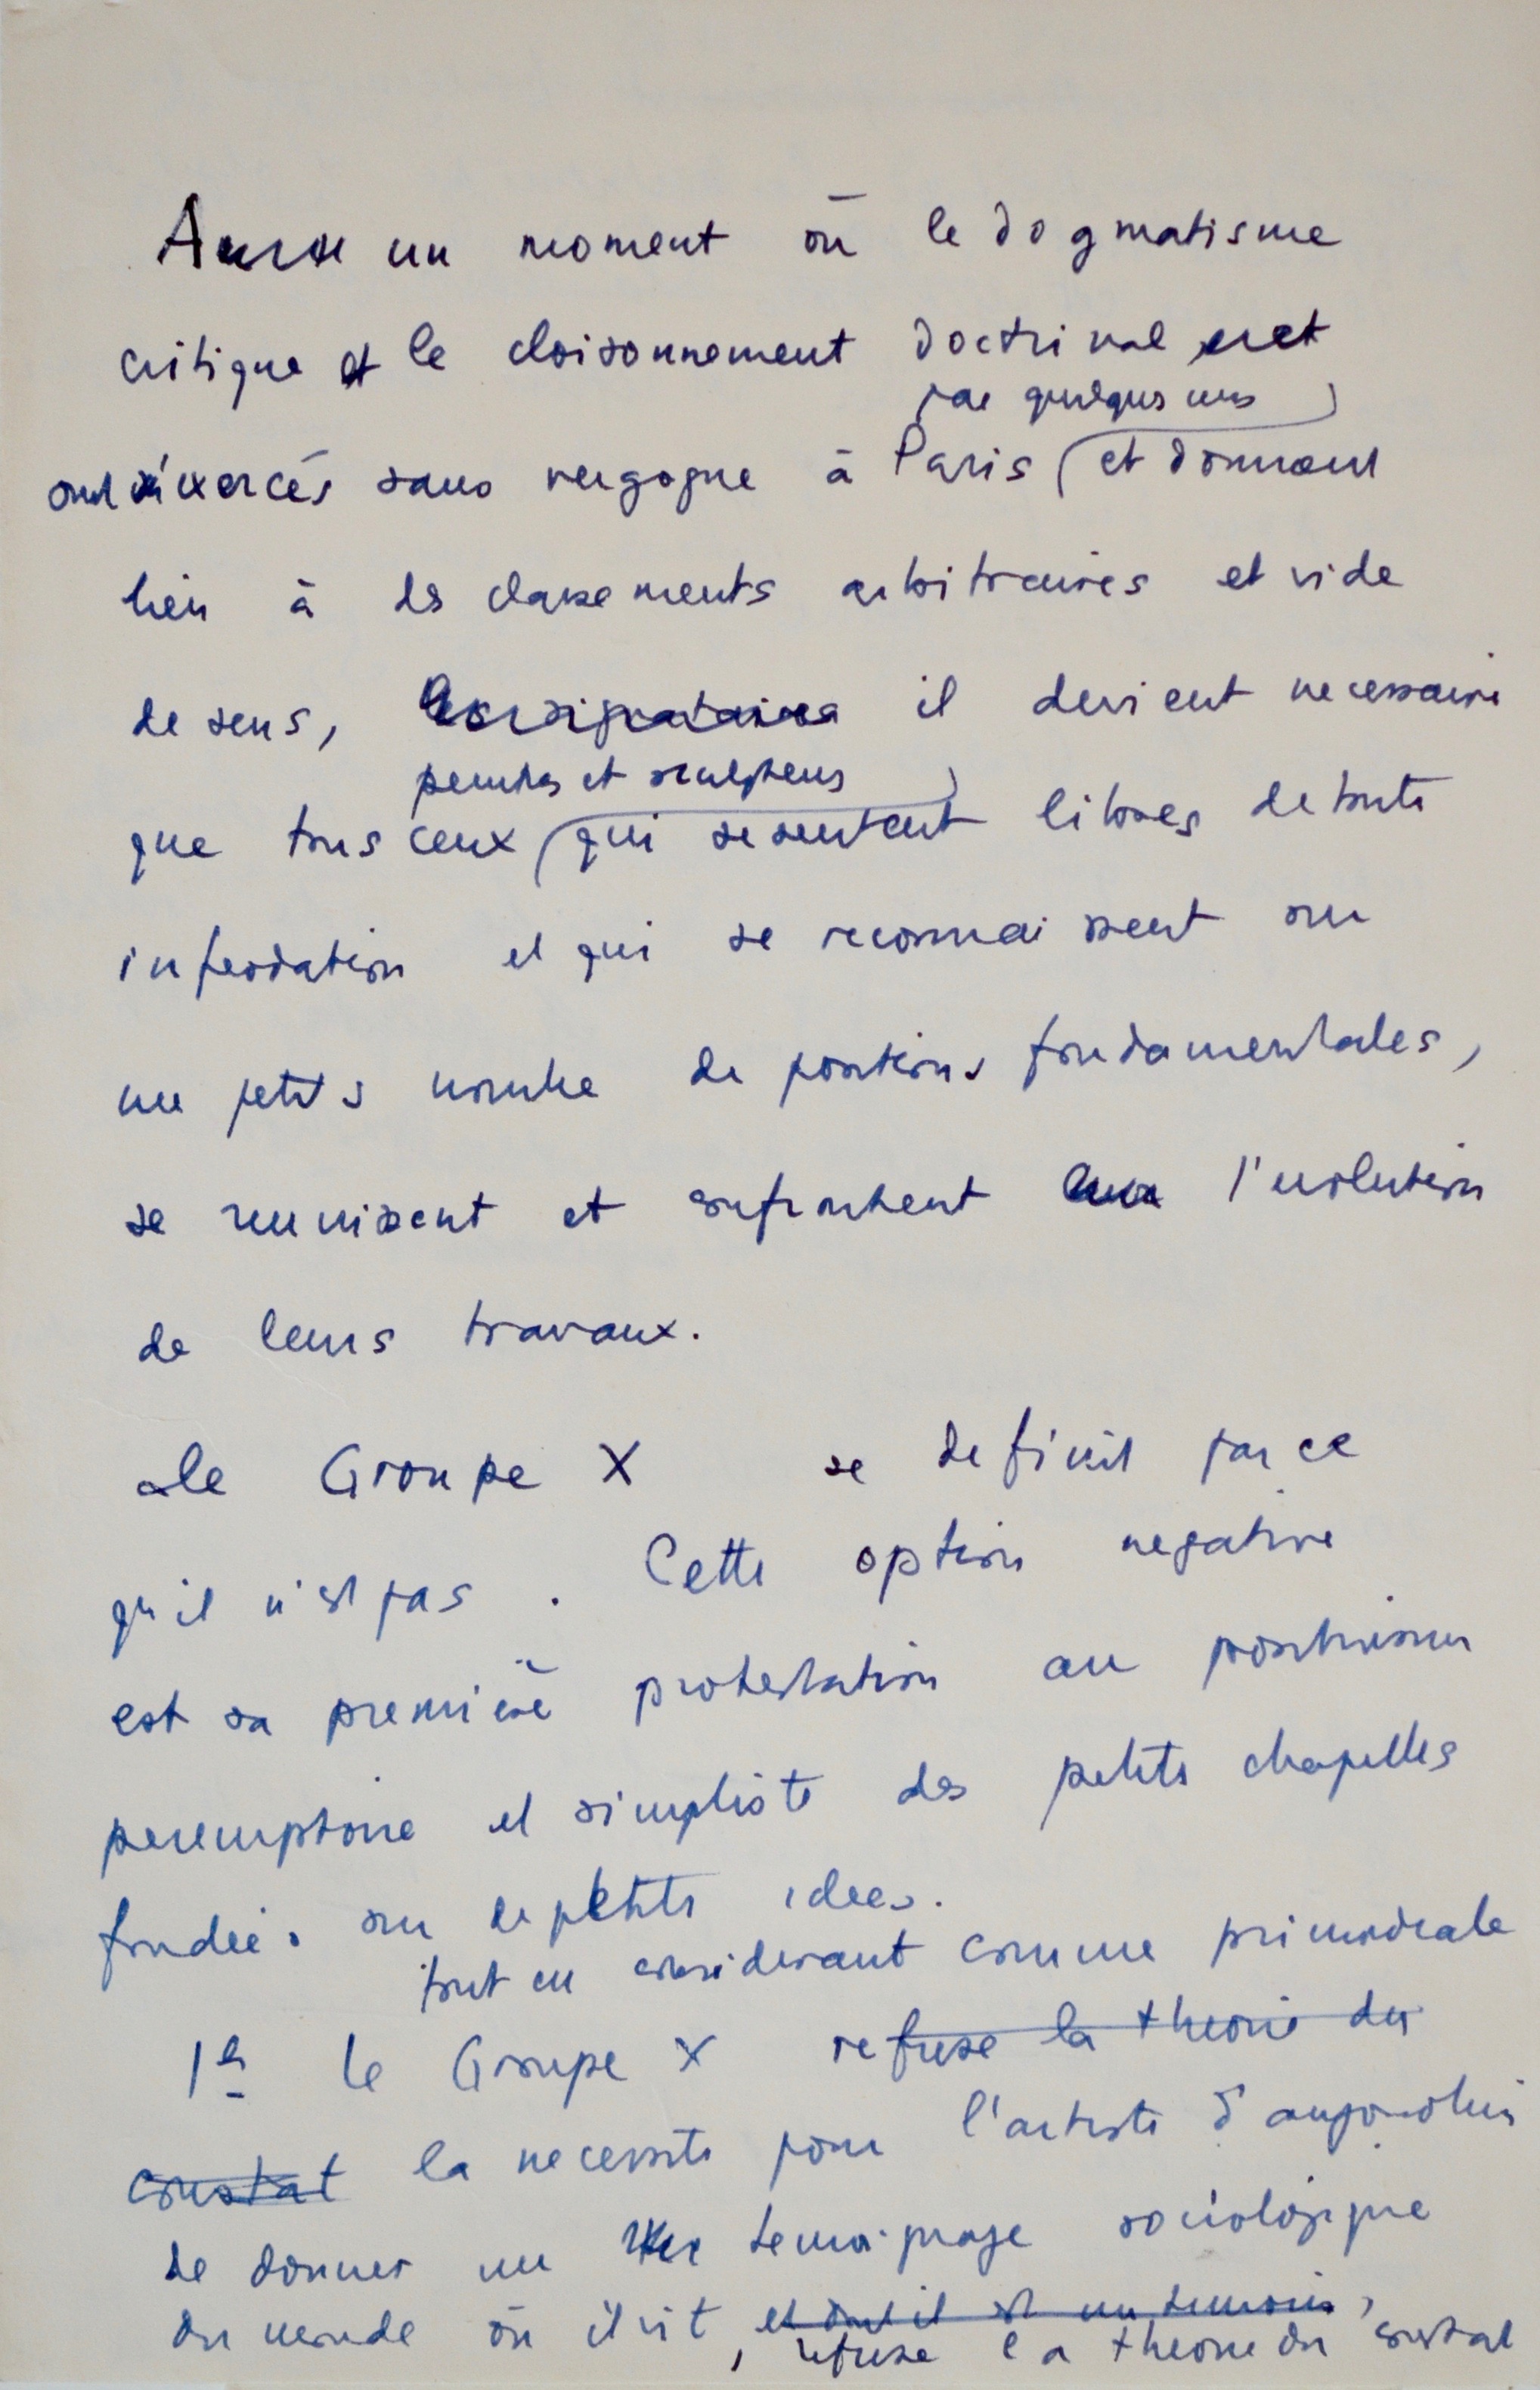 un moment où le dogmatisme
critique et le cloisonnement doctrinal
par quelques uns
ont exercés sans vergogne à Paris et donnent
lieu à des classements arbitraires et vide
de sens, les signataires il devient necessaire
peintres et sculpteurs
que tous ceux qui se sentent libres de toute
infeodation et qui se reconnaissent sur
un petits nombre de positions fondamentales,
se reunissent et confrontent l'evolution
de leurs travaux.
Le Groupe X se definit par ce
qu'il n'est pas. Cette option negative
est sa première protestation au positivisme
peremptoire et simpliste des petites chapelles
fondées sur de petites idees.
tout en considerant comme primordiale
1er le Groupe X refuse la theorie du
constat la necessite pour l'artiste d'aujourdhui
de donner un temoignage sociologique
du monde où il vit, et dont il est un temoin,
refuse la theorie du constat